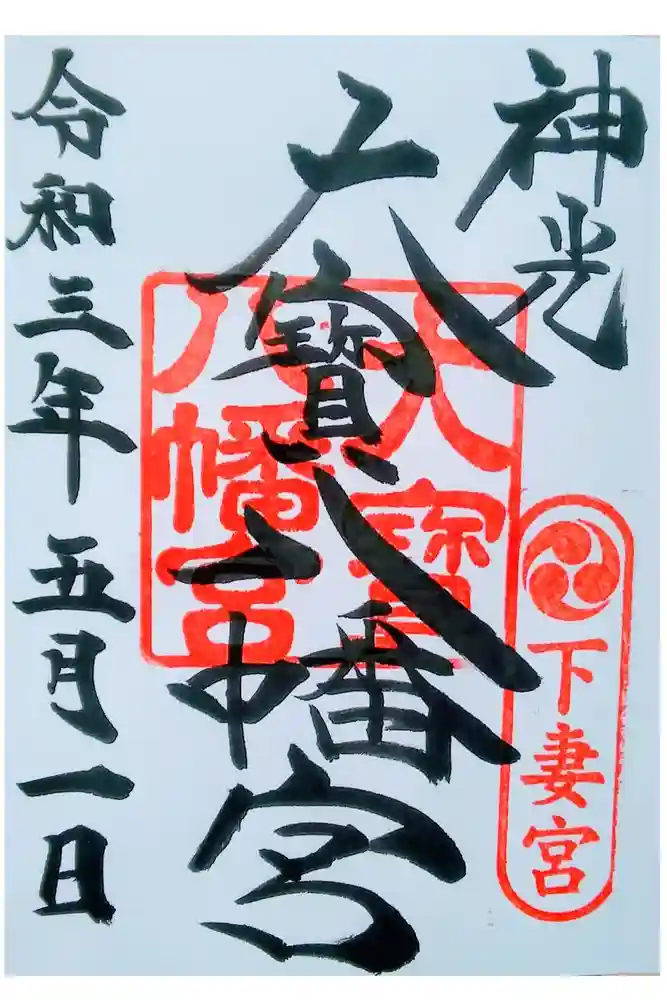 神光
大寶八幡宮
令和三年五月一日
大寶
八幡宮
下妻宮